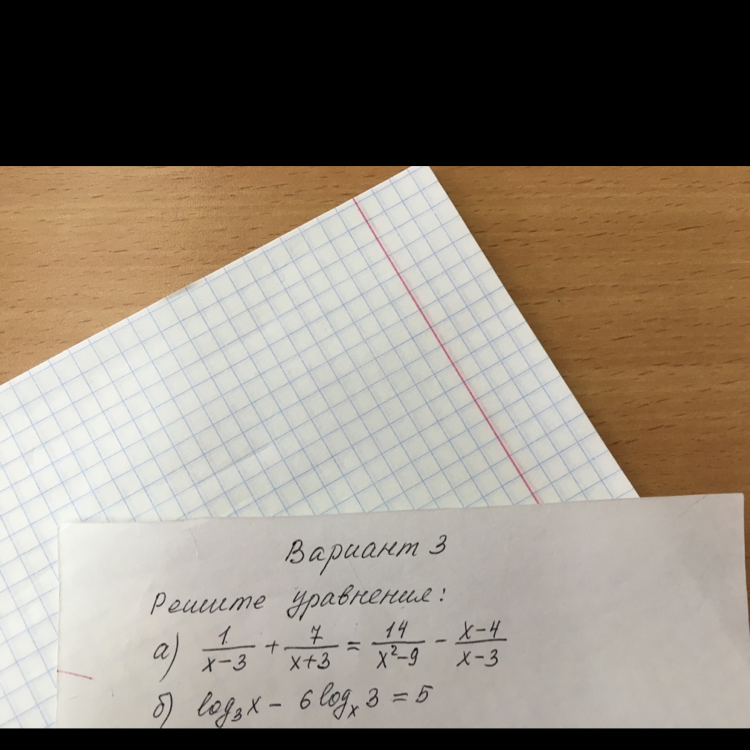 Вариант 3
Решите уравнения:
а) 1/(x-3) + 7/(x+3) = 14/(x²-9) - (x-4)/(x-3)
б) log₃x - 6logₓ3 = 5